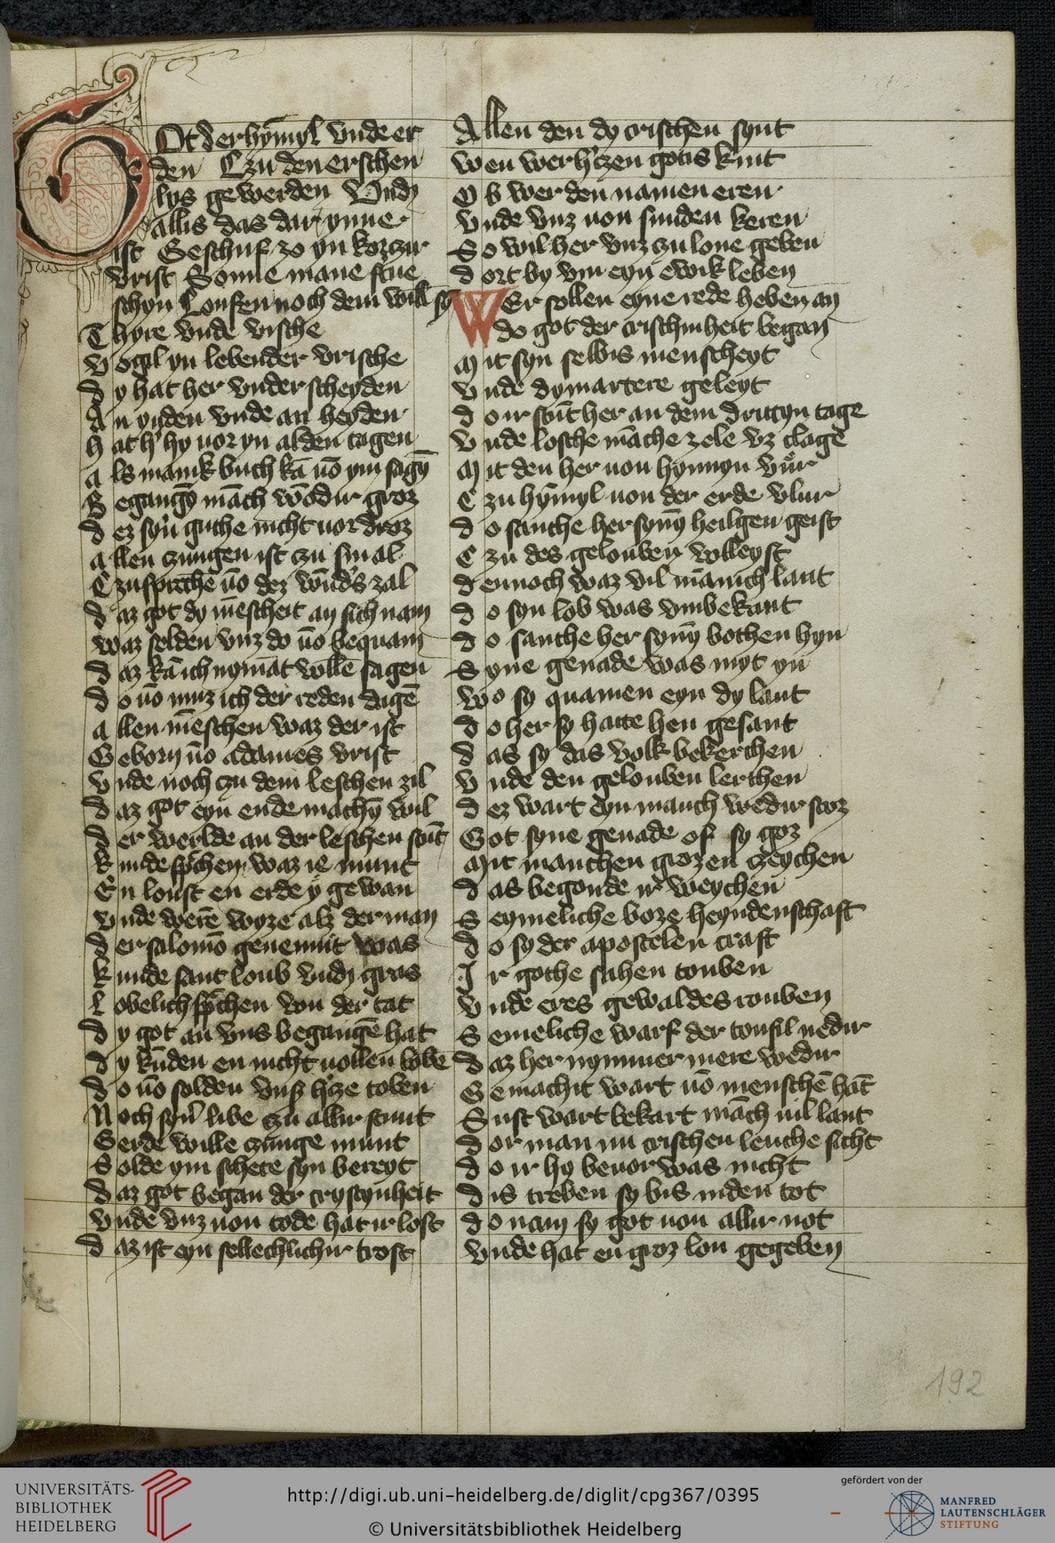 GOt der hȳmyl vnde er
den Czu den erschen
lys gewerden Vndy
allis das dar ynne
ist Geschuf zo yn korczur
vrist Sonne mane sͤne
schyn Loufen noch dem will sy
Thyre vnde vische
Vogil yn lebender vrische
dy hat her vnderscheyden
An yuden vnde an heyden
hat h' hy uor yn alden tagen
als manik buch kā uō ym sagȳ
Begangȳ māch wōdir groz
dez syn guthe nicht uordroz
allen czungen ist czu smal
Czu sprechē uō dez wūd's zal
daz got dy mēscheit an sich nam
waz selden vnz do uō bequam
daz kā ich nymāt vollē sagen
do uō muz ich der reden dagē
allen mēschen waz der ist
Geborn uō adames vrist
vnde noch czu dem leschen zil
daz got eyn ende machȳ wil
der werlde an der leschen stūt
kunde spchen waz ie munt
En loust en erde y gewan
vnde werē wyze alz der man
der salomō genennit was
kunde sant loub vndy gras
lobelich spchen von der tat
dy got an vns begangē hat
dy kūden en nicht uollen lobē
do uō solden vnß h'cze toben
Noch syn' libe czu allir stunt
Gerde wille czunge munt
Solde ym stete syn bereyt
daz got began der crystynheit
vnde vnz uon tode hat ir lost
daz ist eyn sellechlichir trost
Allen den dy crischen synt
wen wer h'czen gotis kint
Ob wer den namen eren
vnde vnz uon sunden keren
So wil her vnz czu lone geben
dort by ym eyn ewik leben
WEr sollen eyne rede heben an
do got der crischinheit began
Mit syn selbis menscheyt
vnde dy martere geleyt
do ir stūt her an dem drittyn tage
vnde losche māche zele vz clage
Mit den her uon hynnyn vur
Czu hȳmyl uon der erde vlur
do sanche her synȳ heilgen geist
Czu des gelouben volleyst
dennoch waz vil mānich lant
do syn lob was vmbekant
do sanche her synȳ bothen hyn
Syne genade was myt yn
wo sy quamen eyn dy lant
do her sy hatte hen gesant
das sy das volk bekerchen
vnde den gelouben lerchen
dez wart eyn manch wedir stoz
Got syne genade of sy goz
Mit manchen grozen czeychen
das begonde ir weychen
Seymeliche boze heyndenschaft
do sy der apostelen craft
Ir gothe sahen touben
vnde eres gewaldes rouben
Semeliche warf der toufil nedir
daz her nymmer mere wedir
Gemachit wart uō menschē hāt
Sust wart bekart māch uil lant
dor man nu crischen leuche sicht
do ir hy beuor was nicht
dis treben sy bis inden tot
do nam sy got uon allir not
vnde hat en groz lon gegeben
192
UNIVERSITÄTS-
BIBLIOTHEK
HEIDELBERG
http://digi.ub.uni-heidelberg.de/diglit/cpg367/0395
© Universitätsbibliothek Heidelberg
gefördert von der
MANFRED
LAUTENSCHLÄGER
STIFTUNG